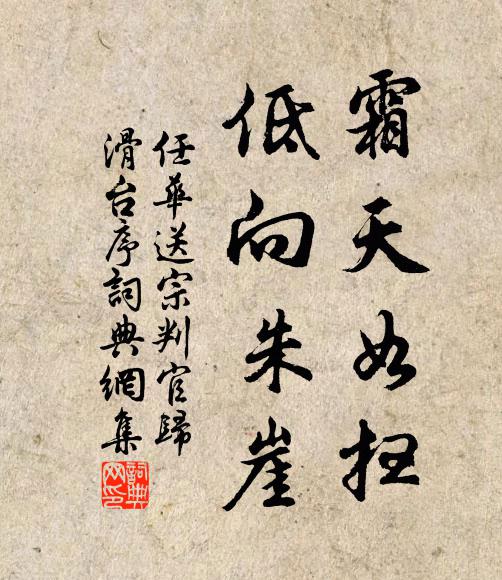 霜天如扫
低向朱崖
任華送宗判官歸
滑台序詞典網集
詞典网印